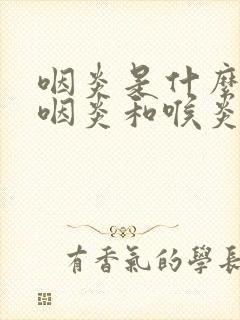 咽炎是什麼
咽炎和喉炎
有香氣的學長